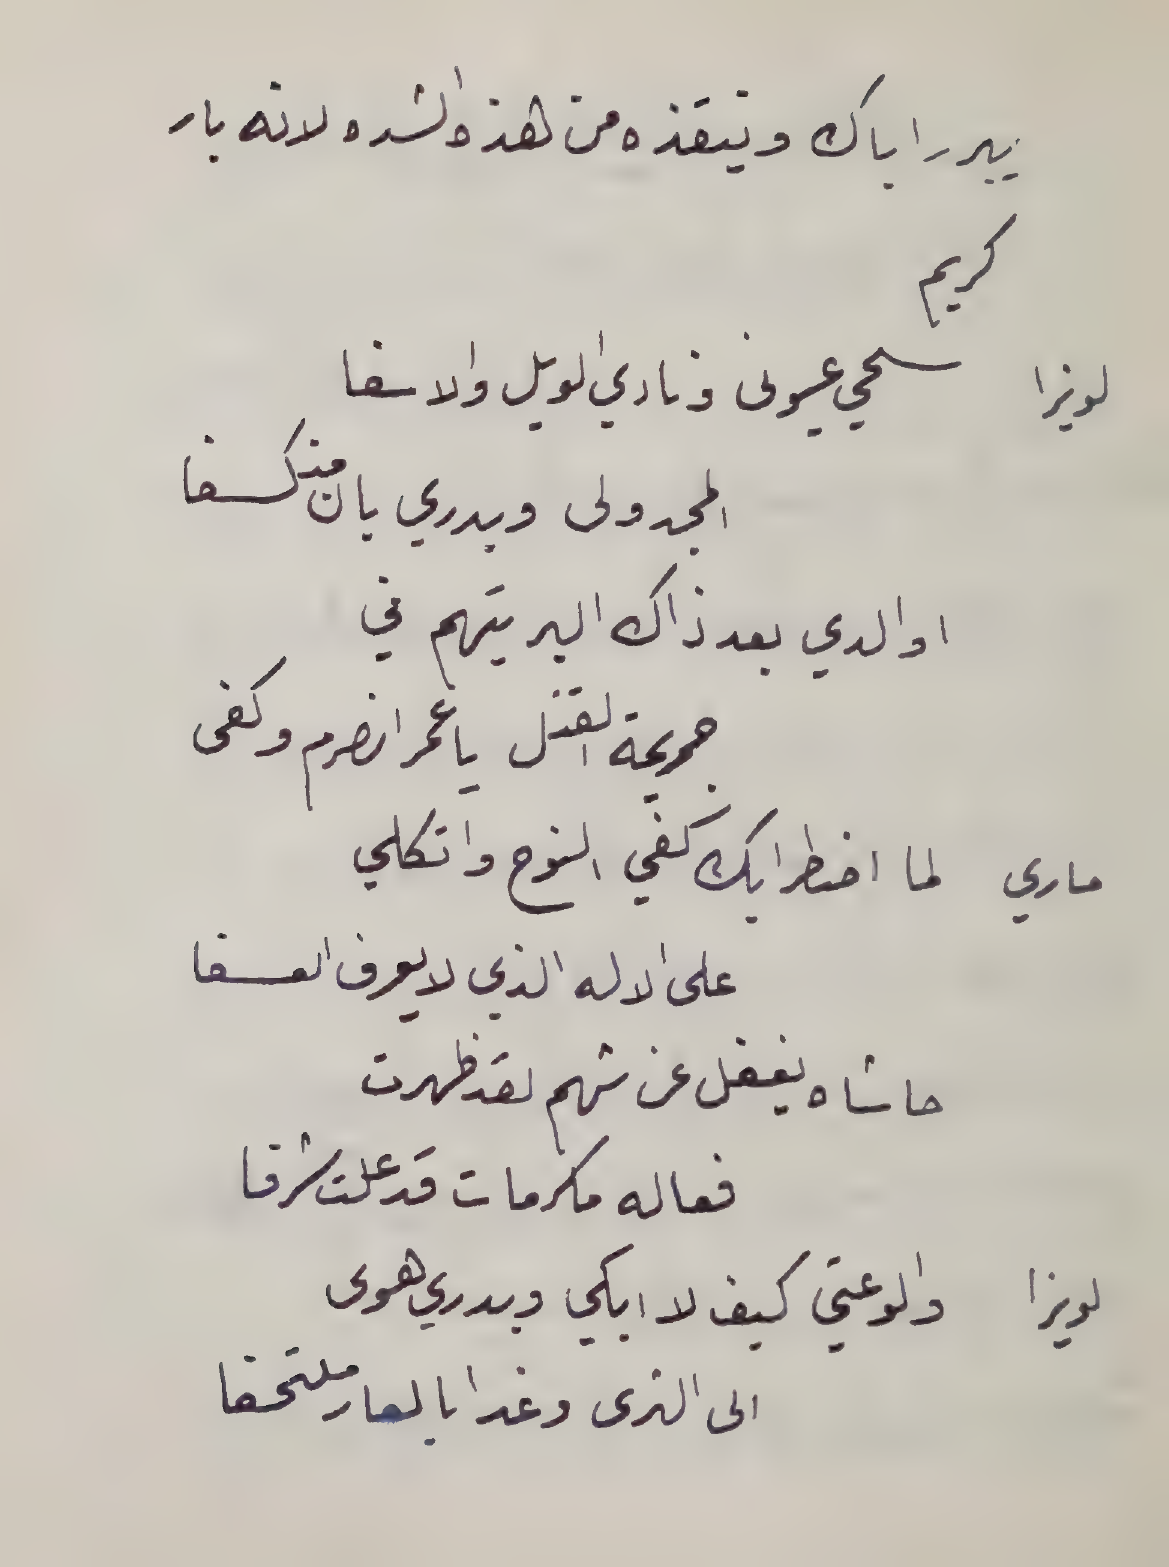 يبرر اباك وينقذه من هذه الشده لانه بار
كريم
لويزا سحي عيوني ونادي الويل والاسفا
المجد ولى وبدري بان منكسفا
اوالدي بعد ذاك البر يتهم في
جريمة القتل يا عمر انصرم وكفى
ماري لما اضطرابك كفي النوح واتكلي
على الاله الذي لا يعرف العسفا
حاشاه يغفل عن شهم لقد ظهرت
فعاله مكرمات قد علت شرفا
لويزا والوعتي كيف لا ابكي وبدري هوى
الى الثرى وغدا بالعار ملتحفا